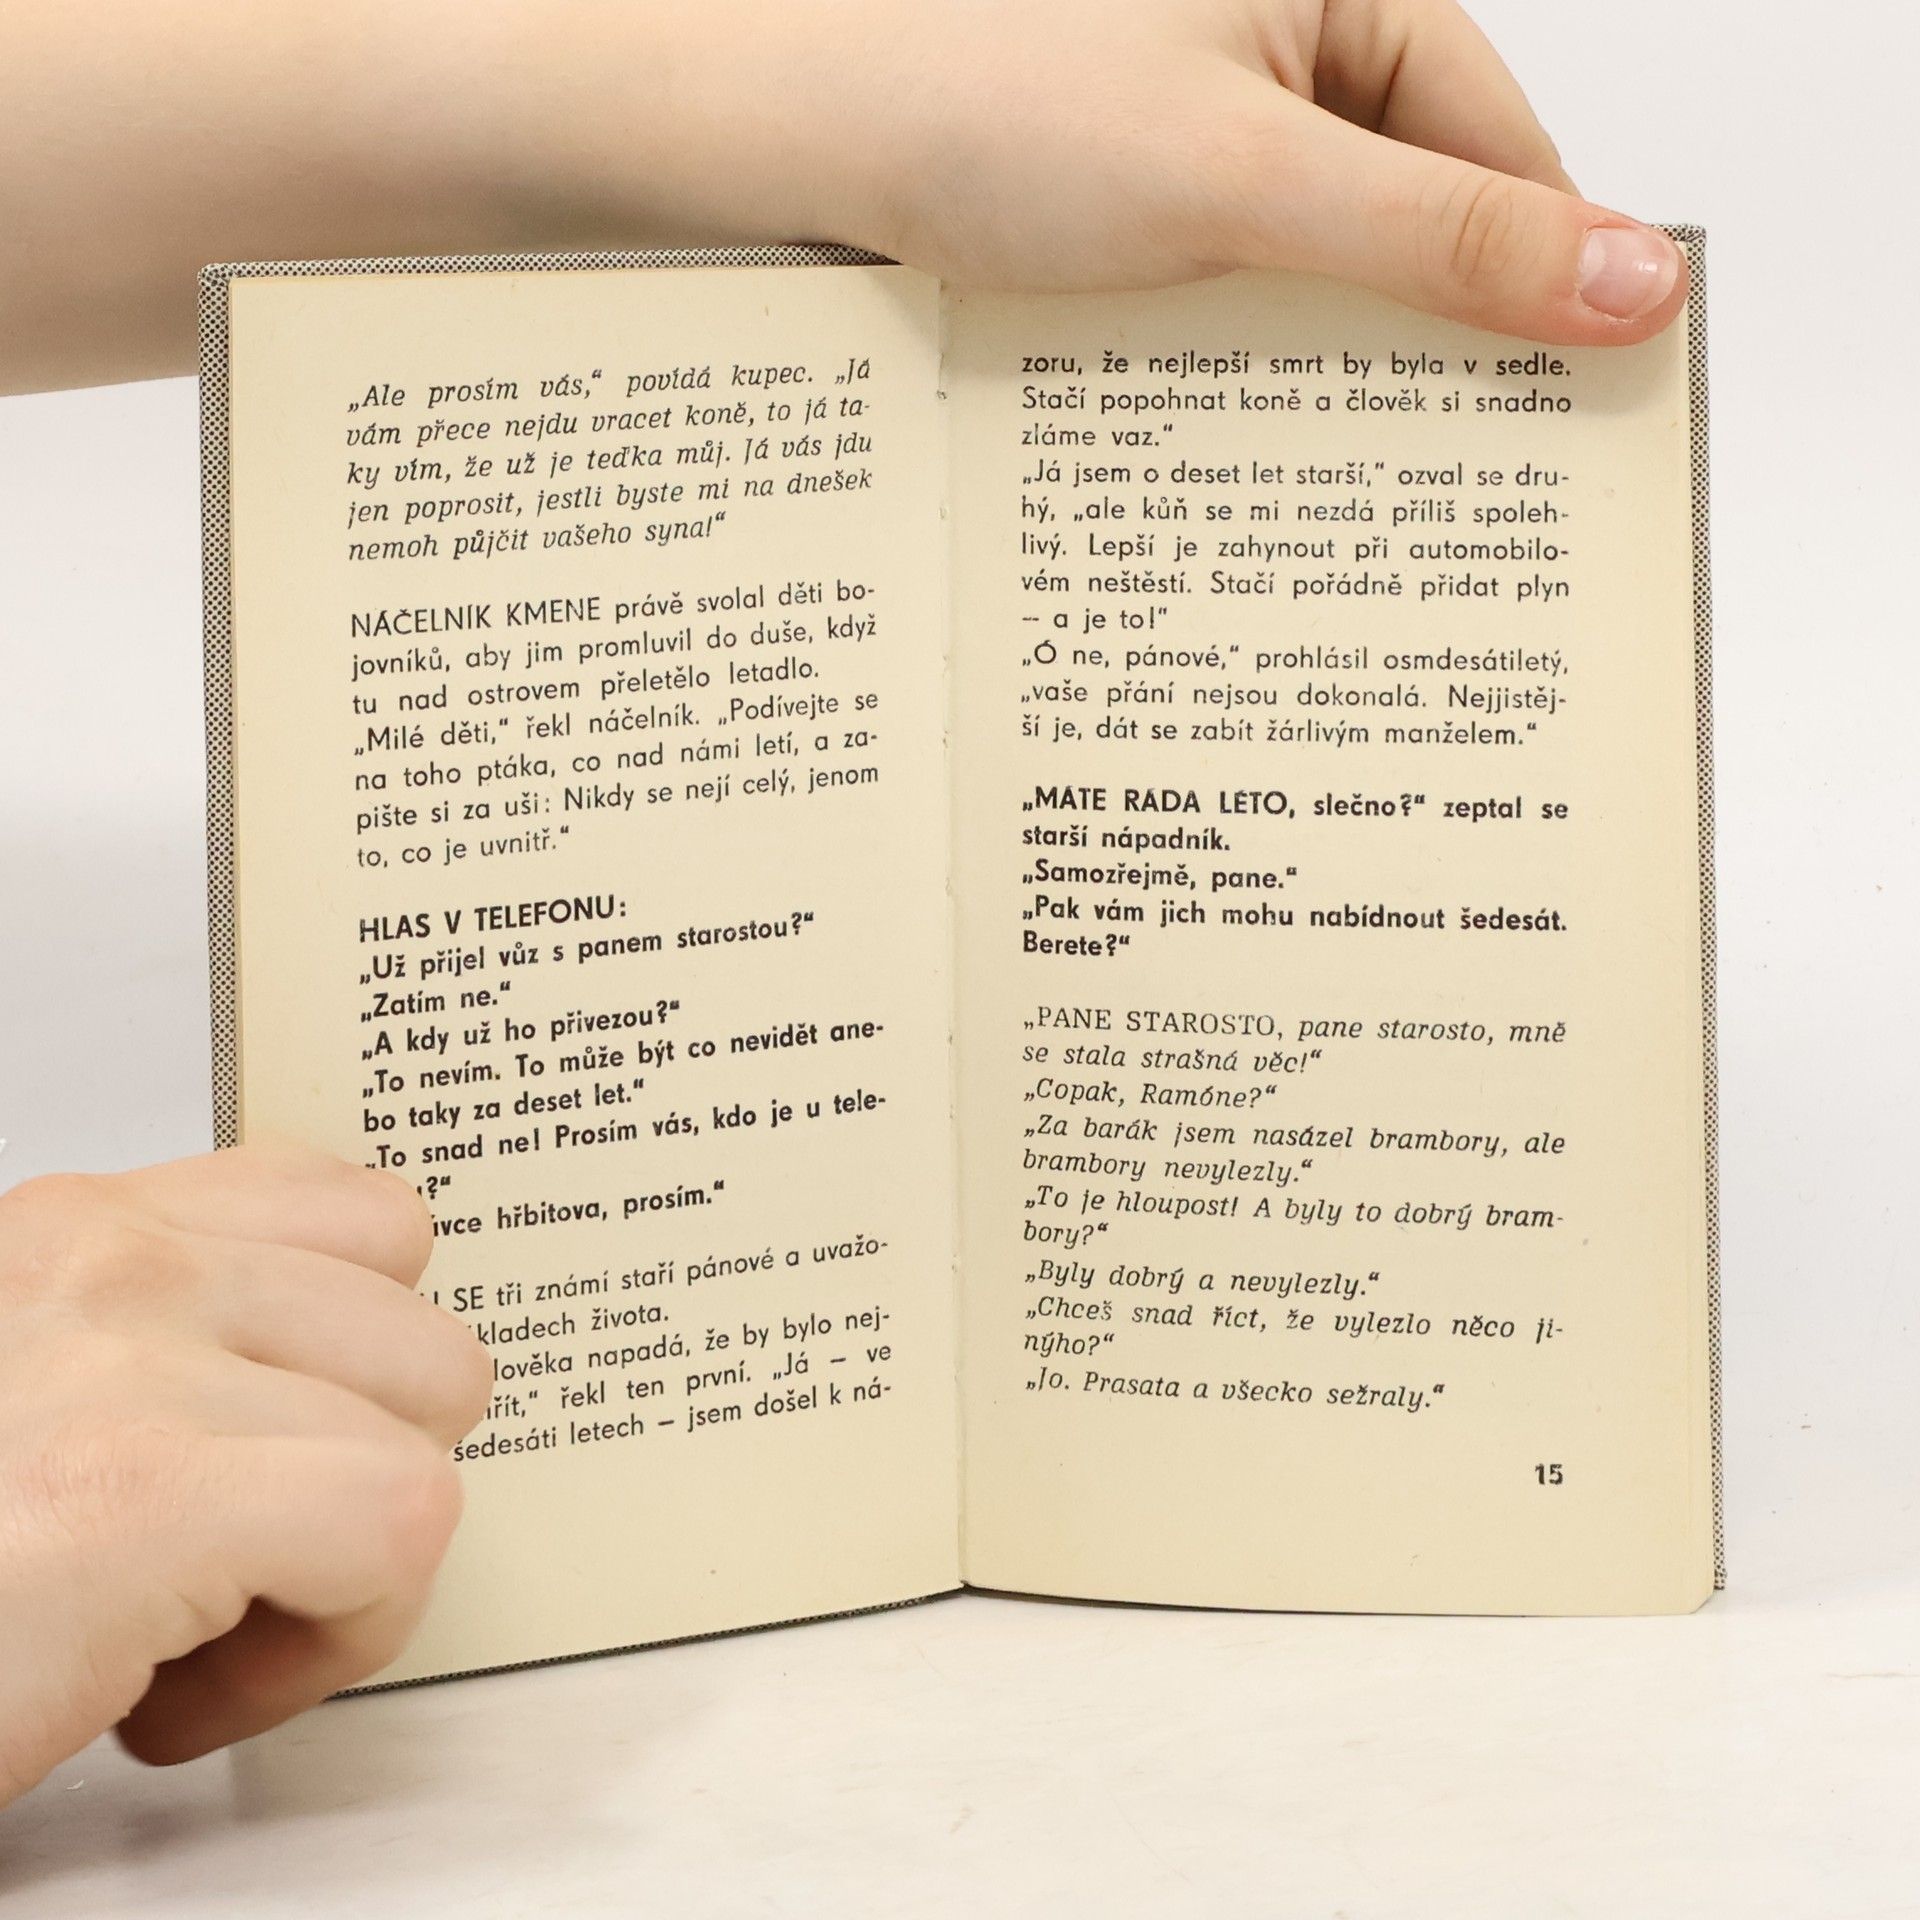 „Ale prosím vás,“ povídá kupec. „Já
vám přece nejdu vracet koně, to já ta-
ky vím, že už je teďka můj. Já vás jdu
jen poprosit, jestli byste mi na dnešek
nemoh půjčit vašeho syna!“
NÁČELNÍK KMENE právě svolal děti bo-
jovníků, aby jim promluvil do duše, když
tu nad ostrovem přeletělo letadlo.
„Milé děti,“ řekl náčelník. „Podívejte se
na toho ptáka, co nad námi letí, a za-
pište si za uši: Nikdy se nejí celý, jenom
to, co je uvnitř.“
HLAS V TELEFONU:
„Už přijel vůz s panem starostou?“
„Zatím ne.“
„A kdy už ho přivezou?“
„To nevím. To může být co nevidět ane-
bo taky za deset let.“
„To snad ne! Prosím vás, kdo je u tele-
?“
hřbitova, prosím.“
SE tři známí staří pánové a uvažo-
života.
napadá, že by bylo nej-
řekl ten první. „Já – ve
šedesáti letech – jsem došel k ná-
zoru, že nejlepší smrt by byla v sedle.
Stačí popohnat koně a člověk si snadno
zláme vaz.“
„Já jsem o deset let starší,“ ozval se dru-
hý, „ale kůň se mi nezdá příliš spoleh-
livý. Lepší je zahynout při automobilo-
vém neštěstí. Stačí pořádně přidat plyn
– a je to!“
„Ó ne, pánové,“ prohlásil osmdesátiletý,
„vaše přání nejsou dokonalá. Nejjistěj-
ší je, dát se zabít žárlivým manželem.“
„MÁTE RÁDA LÉTO, slečno?“ zeptal se
starší nápadník.
„Samozřejmě, pane.“
„Pak vám jich mohu nabídnout šedesát.
Berete?“
„PANE STAROSTO, pane starosto, mně
se stala strašná věc!“
„Copak, Ramóne?“
„Za barák jsem nasázel brambory, ale
brambory nevylezly.“
„To je hloupost! A byly to dobrý bram-
bory?“
„Byly dobrý a nevylezly.“
„Chceš snad říct, že vylezlo něco ji-
nýho?“
„Jo. Prasata a všecko sežraly.“
15